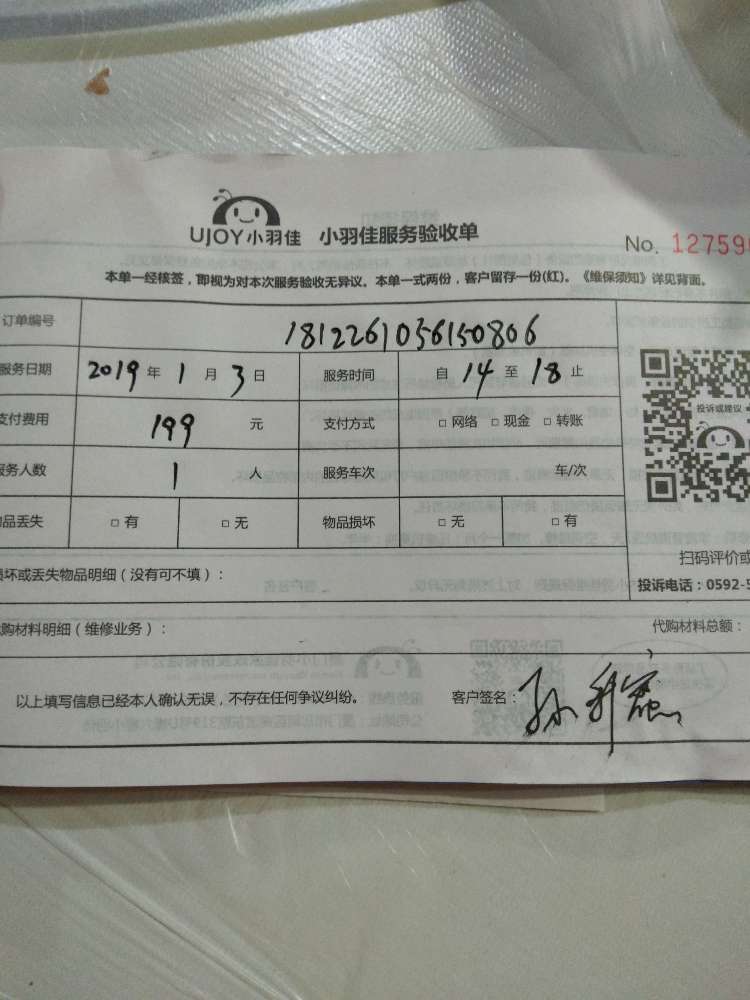 UJOY小羽佳 小羽佳服务验收单
No. 12759
本单一经核签，即视为对本次服务验收无异议。本单一式两份，客户留存一份(红)。《维保须知》详见背面。
订单编号 1812261056150806
服务日期 2019 年 1 月 3 日 服务时间 自 14 至 18 止
支付费用 199 元 支付方式 □ 网络 □ 现金 □ 转账
投诉或建议
服务人数 1 人 服务车次 车/次
品丢失 □ 有 □ 无 物品损坏 □ 无 □ 有
扫码评价或
坏或丢失物品明细（没有可不填）：
投诉电话：0592-5
购材料明细（维修业务）： 代购材料总额：
以上填写信息已经本人确认无误，不存在任何争议纠纷。 客户签名：孙